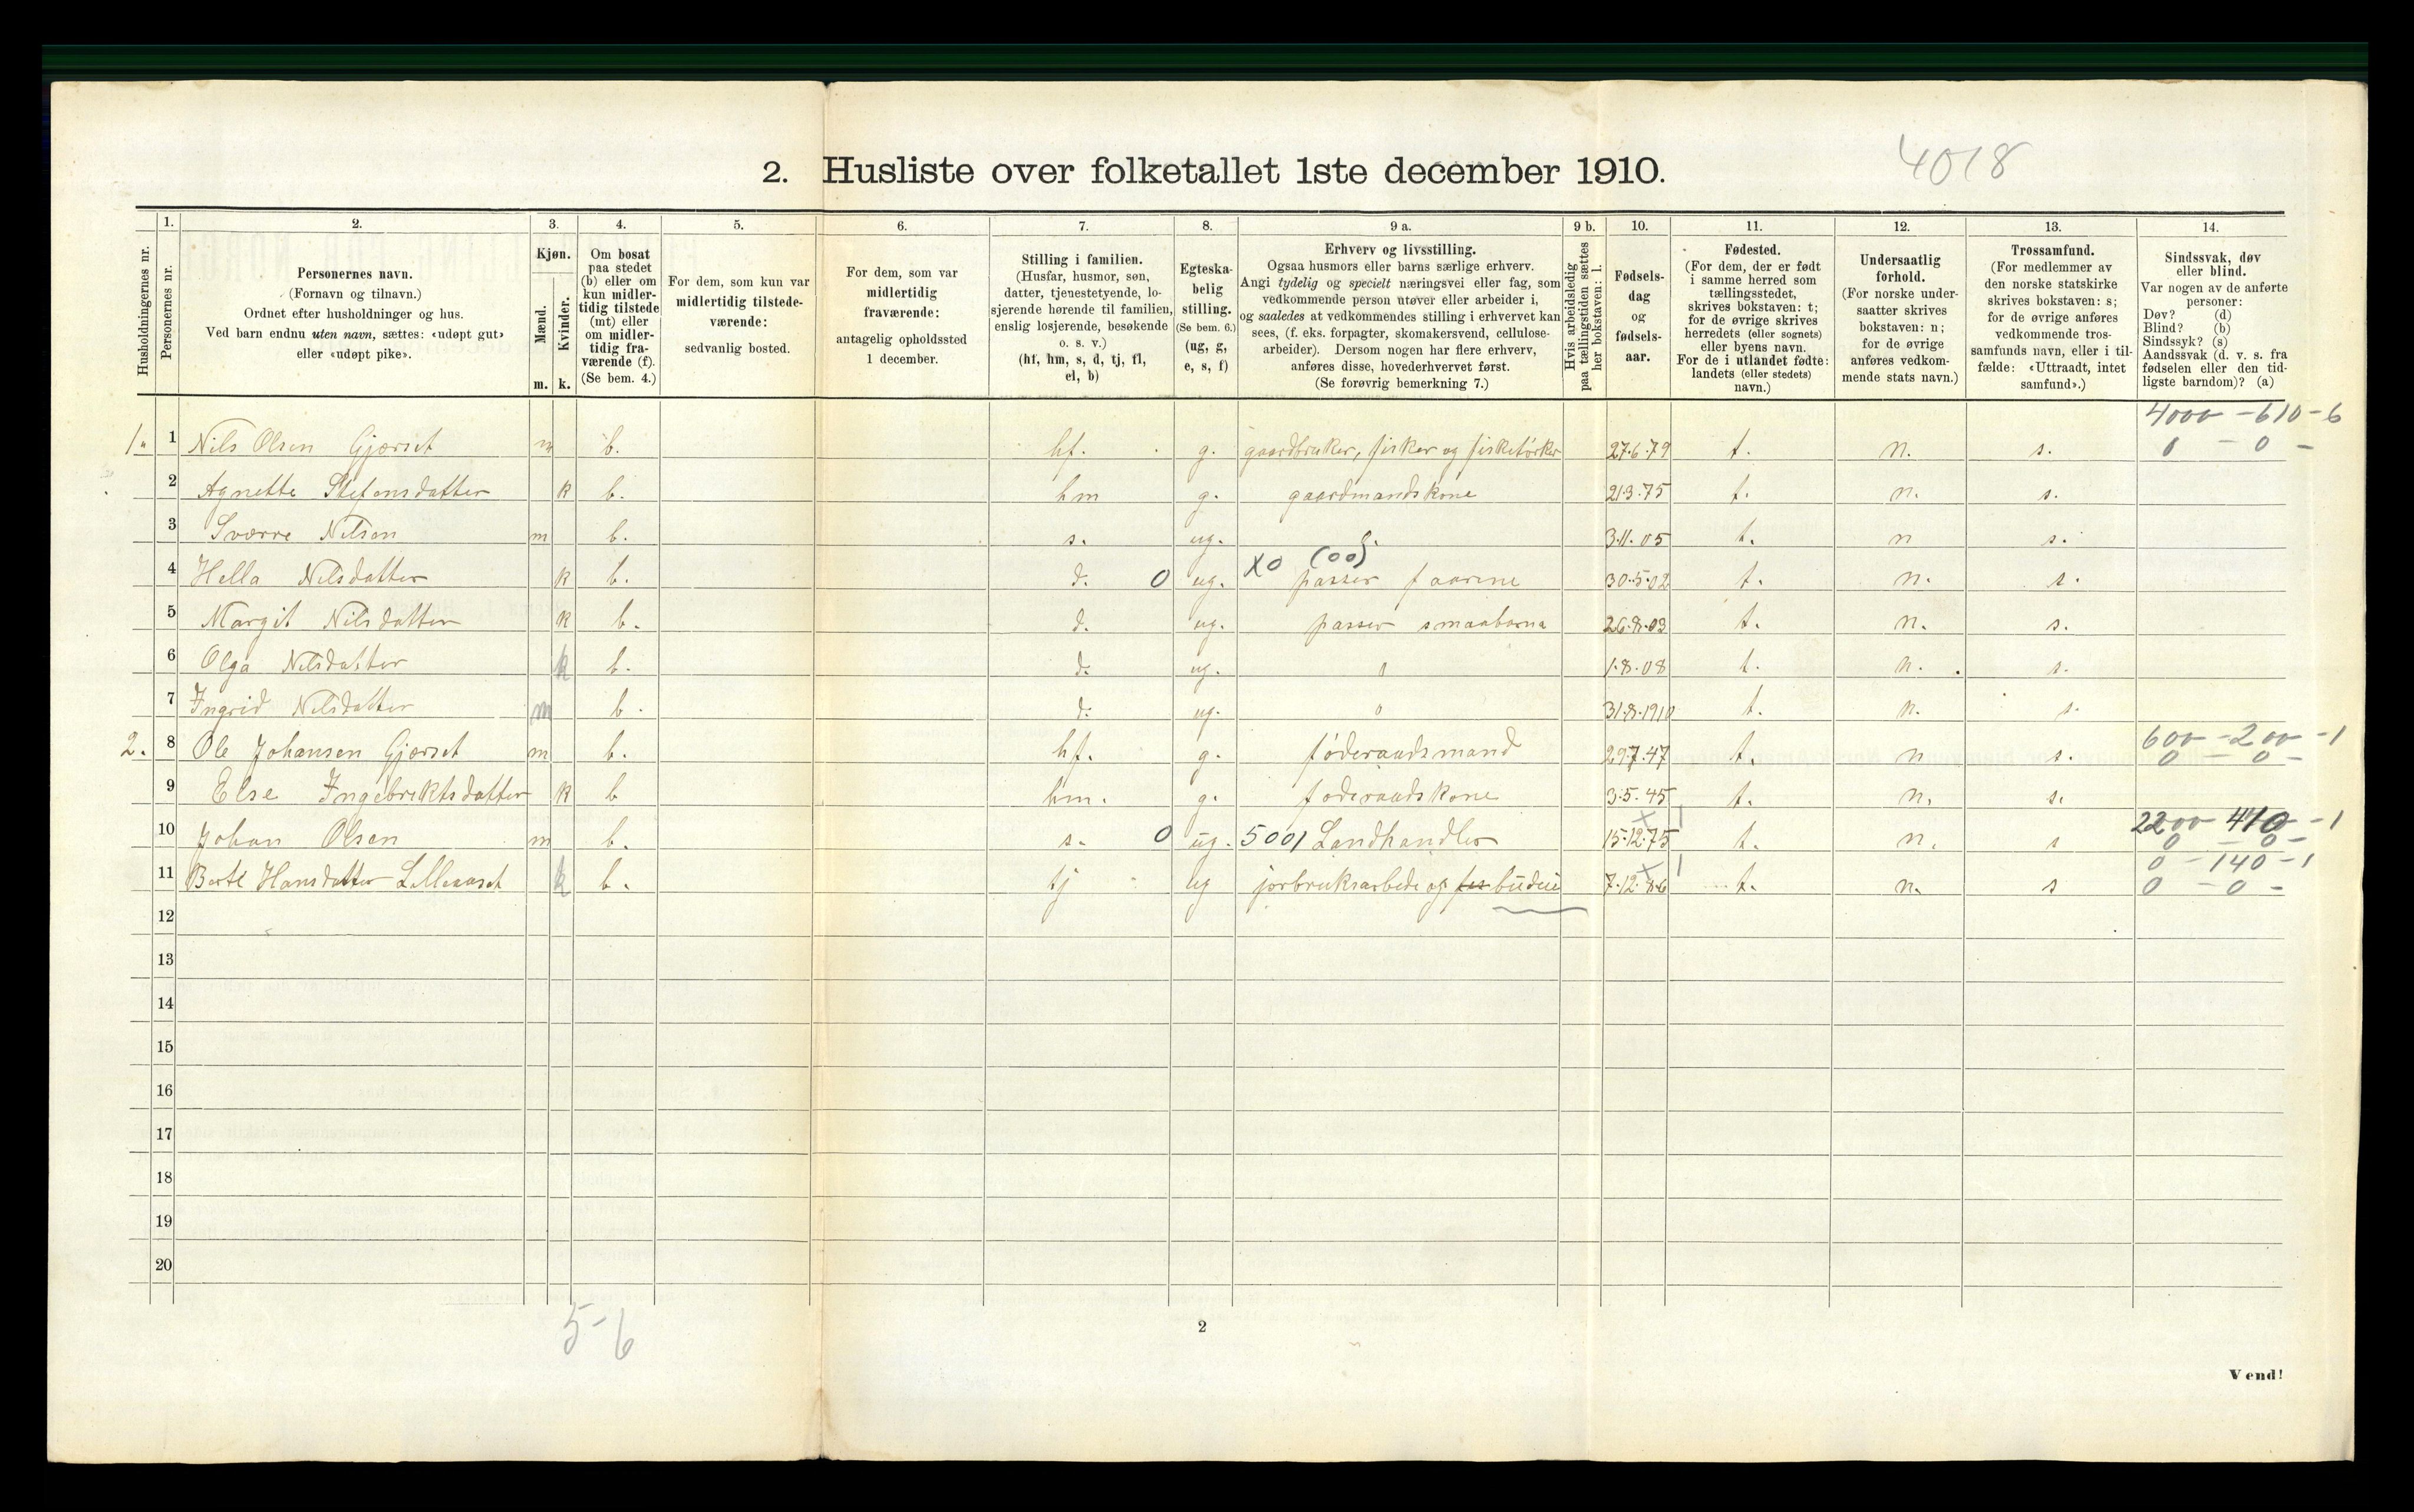 4018
2. Husliste over folketallet 1ste december 1910.
Husholdningernes nr.
1.
Personernes nr.
2.
Personernes navn.
(Fornavn og tilnavn.)
Ordnet efter husholdninger og hus.
Ved barn endnu uten navn, sættes: «udøpt gut»
eller «udøpt pike».
3.
Kjøn.
Mænd.
Kvinder.
m. k.
4.
Om bosat
paa stedet
(b) eller om
kun midler-
tidig tilstede
(mt) eller
om midler-
tidig fra-
værende (f).
(Se bem. 4.)
5.
For dem, som kun var
midlertidig tilstede-
værende:
sedvanlig bosted.
6.
For dem, som var
midlertidig
fraværende:
antagelig opholdssted
1 december.
7.
Stilling i familien.
(Husfar, husmor, søn,
datter, tjenestetyende, lo-
sjerende hørende til familien,
enslig losjerende, besøkende
o. s. v.)
(hf, hm, s, d, tj, fl,
el, b)
8.
Egteska-
belig
stilling.
(Se bem. 6.)
(ug, g,
e, s, f)
9 a.
Erhverv og livsstilling.
Ogsaa husmors eller barns særlige erhverv.
Angi tydelig og specielt næringsvei eller fag, som
vedkommende person utøver eller arbeider i,
og saaledes at vedkommendes stilling i erhvervet kan
sees, (f. eks. forpagter, skomakersvend, cellulose-
arbeider). Dersom nogen har flere erhverv,
anføres disse, hovederhvervet først.
(Se forøvrig bemerkning 7.)
9 b.
Hvis arbeidsledig
paa tællingstiden sættes
her bokstaven: l.
10.
Fødsels-
dag
og
fødsels-
aar.
11.
Fødested.
(For dem, der er født
i samme herred som
tællingsstedet,
skrives bokstaven: t;
for de øvrige skrives
herredets (eller sognets)
eller byens navn.
For de i utlandet fødte:
landets (eller stedets)
navn.)
12.
Undersaatlig
forhold.
(For norske under-
saatter skrives
bokstaven: n;
for de øvrige
anføres vedkom-
mende stats navn.)
13.
Trossamfund.
(For medlemmer av
den norske statskirke
skrives bokstaven: s;
for de øvrige anføres
vedkommende tros-
samfunds navn, eller i til-
fælde: «Uttraadt, intet
samfund».)
14.
Sindssvak, døv
eller blind.
Var nogen av de anførte
personer:
Døv? (d)
Blind? (b)
Sindssyk? (s)
Aandssvak (d. v. s. fra
fødselen eller den tid-
ligste barndom)? (a)
4000 - 610 - 6
1. 1 Nils Olsen Gjørset m b. hf. g. gaardbruker, fisker og fisketørker 27.6.79 t. n. s. 0 - 0 -
2 Agnette Stefensdatter k b. hm g. gaardmandskone 21.3.75 t. n. s.
3 Sverre Nilsen m b. s. ug. 3.11.05 t. n s.
X0 (00)
4 Hella Nilsdatter k b. d. 0 ug. passer faarene 30.5.02 t. n. s.
5 Margit Nilsdatter k b. d. ug. passer smaabarna 26.8.03 t. n. s.
6 Olga Nilsdatter k b. d. ug. 1.8.08 t. n. s.
7 Ingrid Nilsdatter m b. d. ug. 31.8.1910 t. n. s.
600 - 200 - 1
2. 8 Ole Johansen Gjørset m b. hf. g. føderaadsmand 29.7.47 t. n s. 0 - 0 -
9 Else Ingebriktsdatter k b hm. g. føderaadskone 3.5.45 t. n. s.
2200 - 410 - 1
10 Johan Olsen m b. s. 0 ug. 5001 Landhandler 15.12.75 t. n. s 0 - 0 -
0 - 140 - 1
11 Berte Hansdatter Lilleaaset k b. tj ug jorbruksarbeide og budeie 7.12.86 t. n. s 0 - 0 -
12
13
14
15
16
17
18
19
20
5-6
2
Vend!